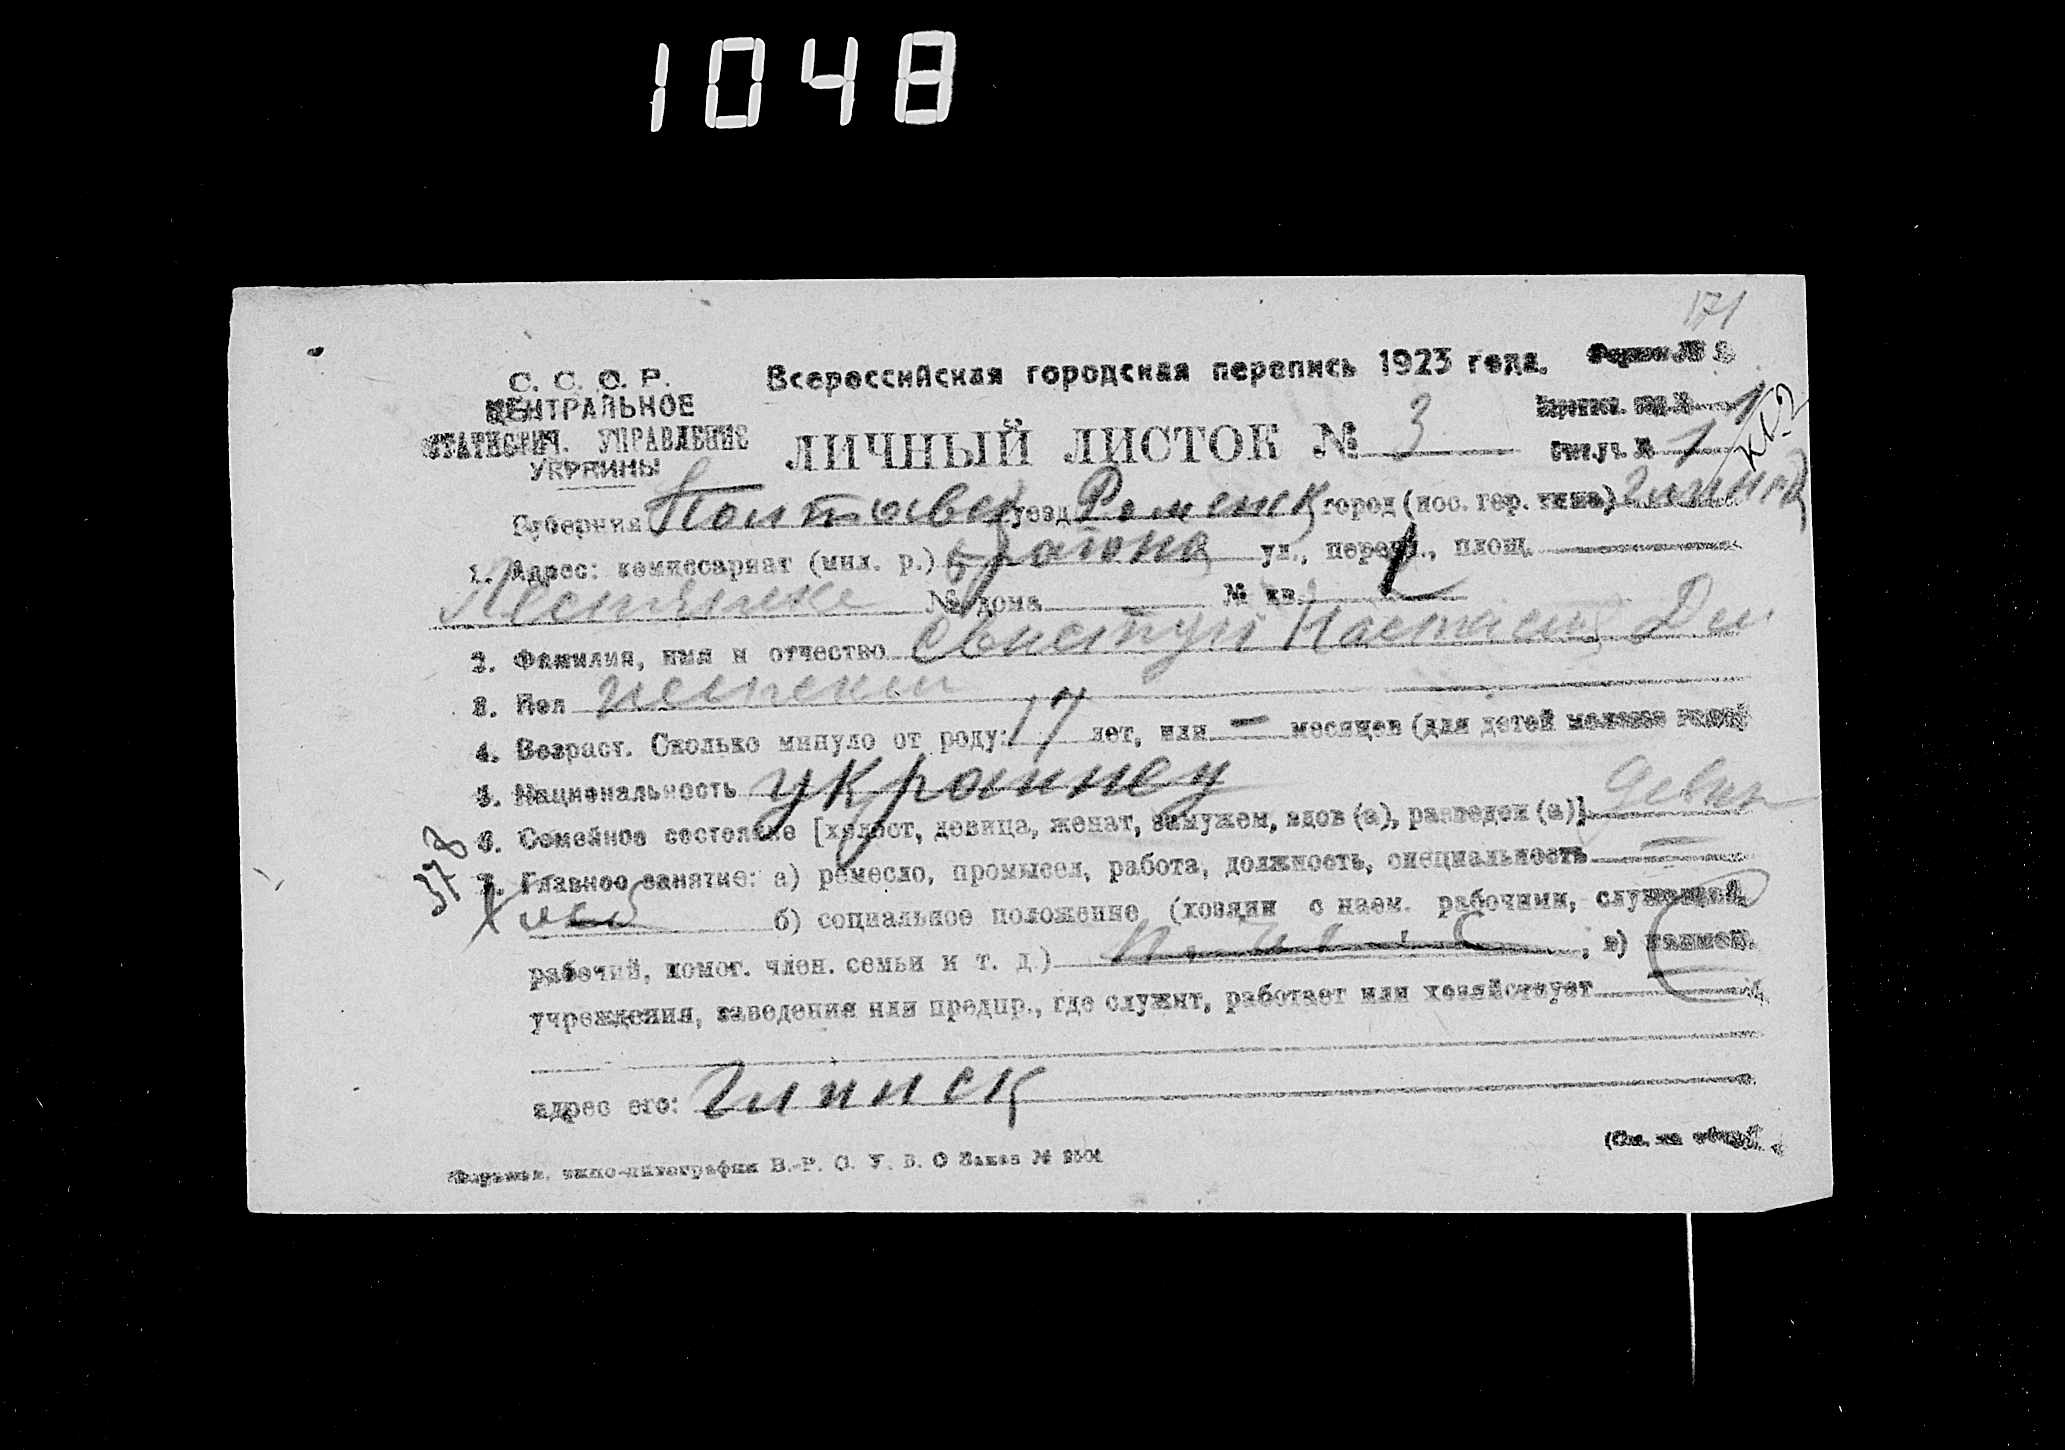 1048
171
С. С. С. Р.
ЦЕНТРАЛЬНОЕ
СТАТИСТИЧ. УПРАВЛЕНИЕ
УКРАИНЫ
Всероссийская городская перепись 1923 года.
Форма № 2.
ЛИЧНЫЙ ЛИСТОК № 3
1
Счет. уч. № 1
Губерния Полтавск уезд Роменск город (пос. гор. типа) Глинск
1. Адрес: комиссариат (мил. р.) района ул., переул., площ.
№ дома № кв.
2. Фамилия, имя и отчество Свистун Настасия Дм
3. Пол женский
4. Возраст. Сколько минуло от роду: 17 лет, или — месяцев (для детей моложе года)
5. Национальность украинец
6. Семейное состояние [холост, девица, женат, замужем, вдов (а), разведен (а)] девиц
378
7. Главное занятие: а) ремесло, промысел, работа, должность, специальность
хлеб б) социальное положение (хозяин с наем. рабочими, служащий,
рабочий, помог. член. семьи и т. д.) П. Ч. С ; в) наимен.
учреждения, заведения или предпр., где служит, работает или хозяйствует
адрес его: Глинск
типо-литография В.-Р. О. У. В. О Заказ №
(См. на обор.)